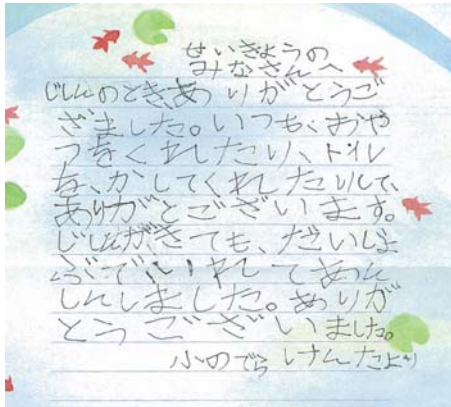 せいきょうの
みなさんへ
じしんのとき、ありがとうご
ざました。いつも、おや
つをくれたり、トイレ
を、かしてくれたりして、
ありがとございます。
じしんがきても、だいじょ
ぶでいれてあん
しんしました。ありが
とうございました。
小のでら けんたより